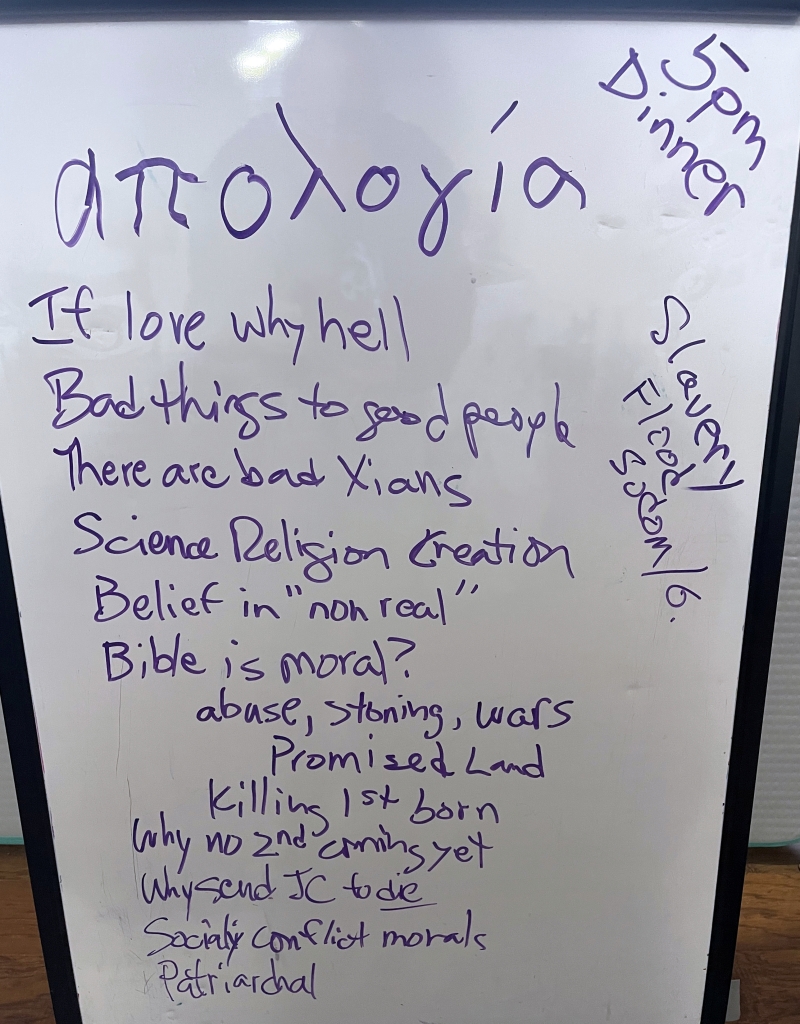 5pm
Dinner
απολογία
If love why hell
Bad things to good people
There are bad Xians
Science Religion Creation
Belief in "non real"
Bible is moral?
abuse, stoning, wars
Promised Land
Killing 1st born
Why no 2nd coming yet
Why send JC to die
conflict morals
Patriarchal
Slavery
Flood
Sodom/G.